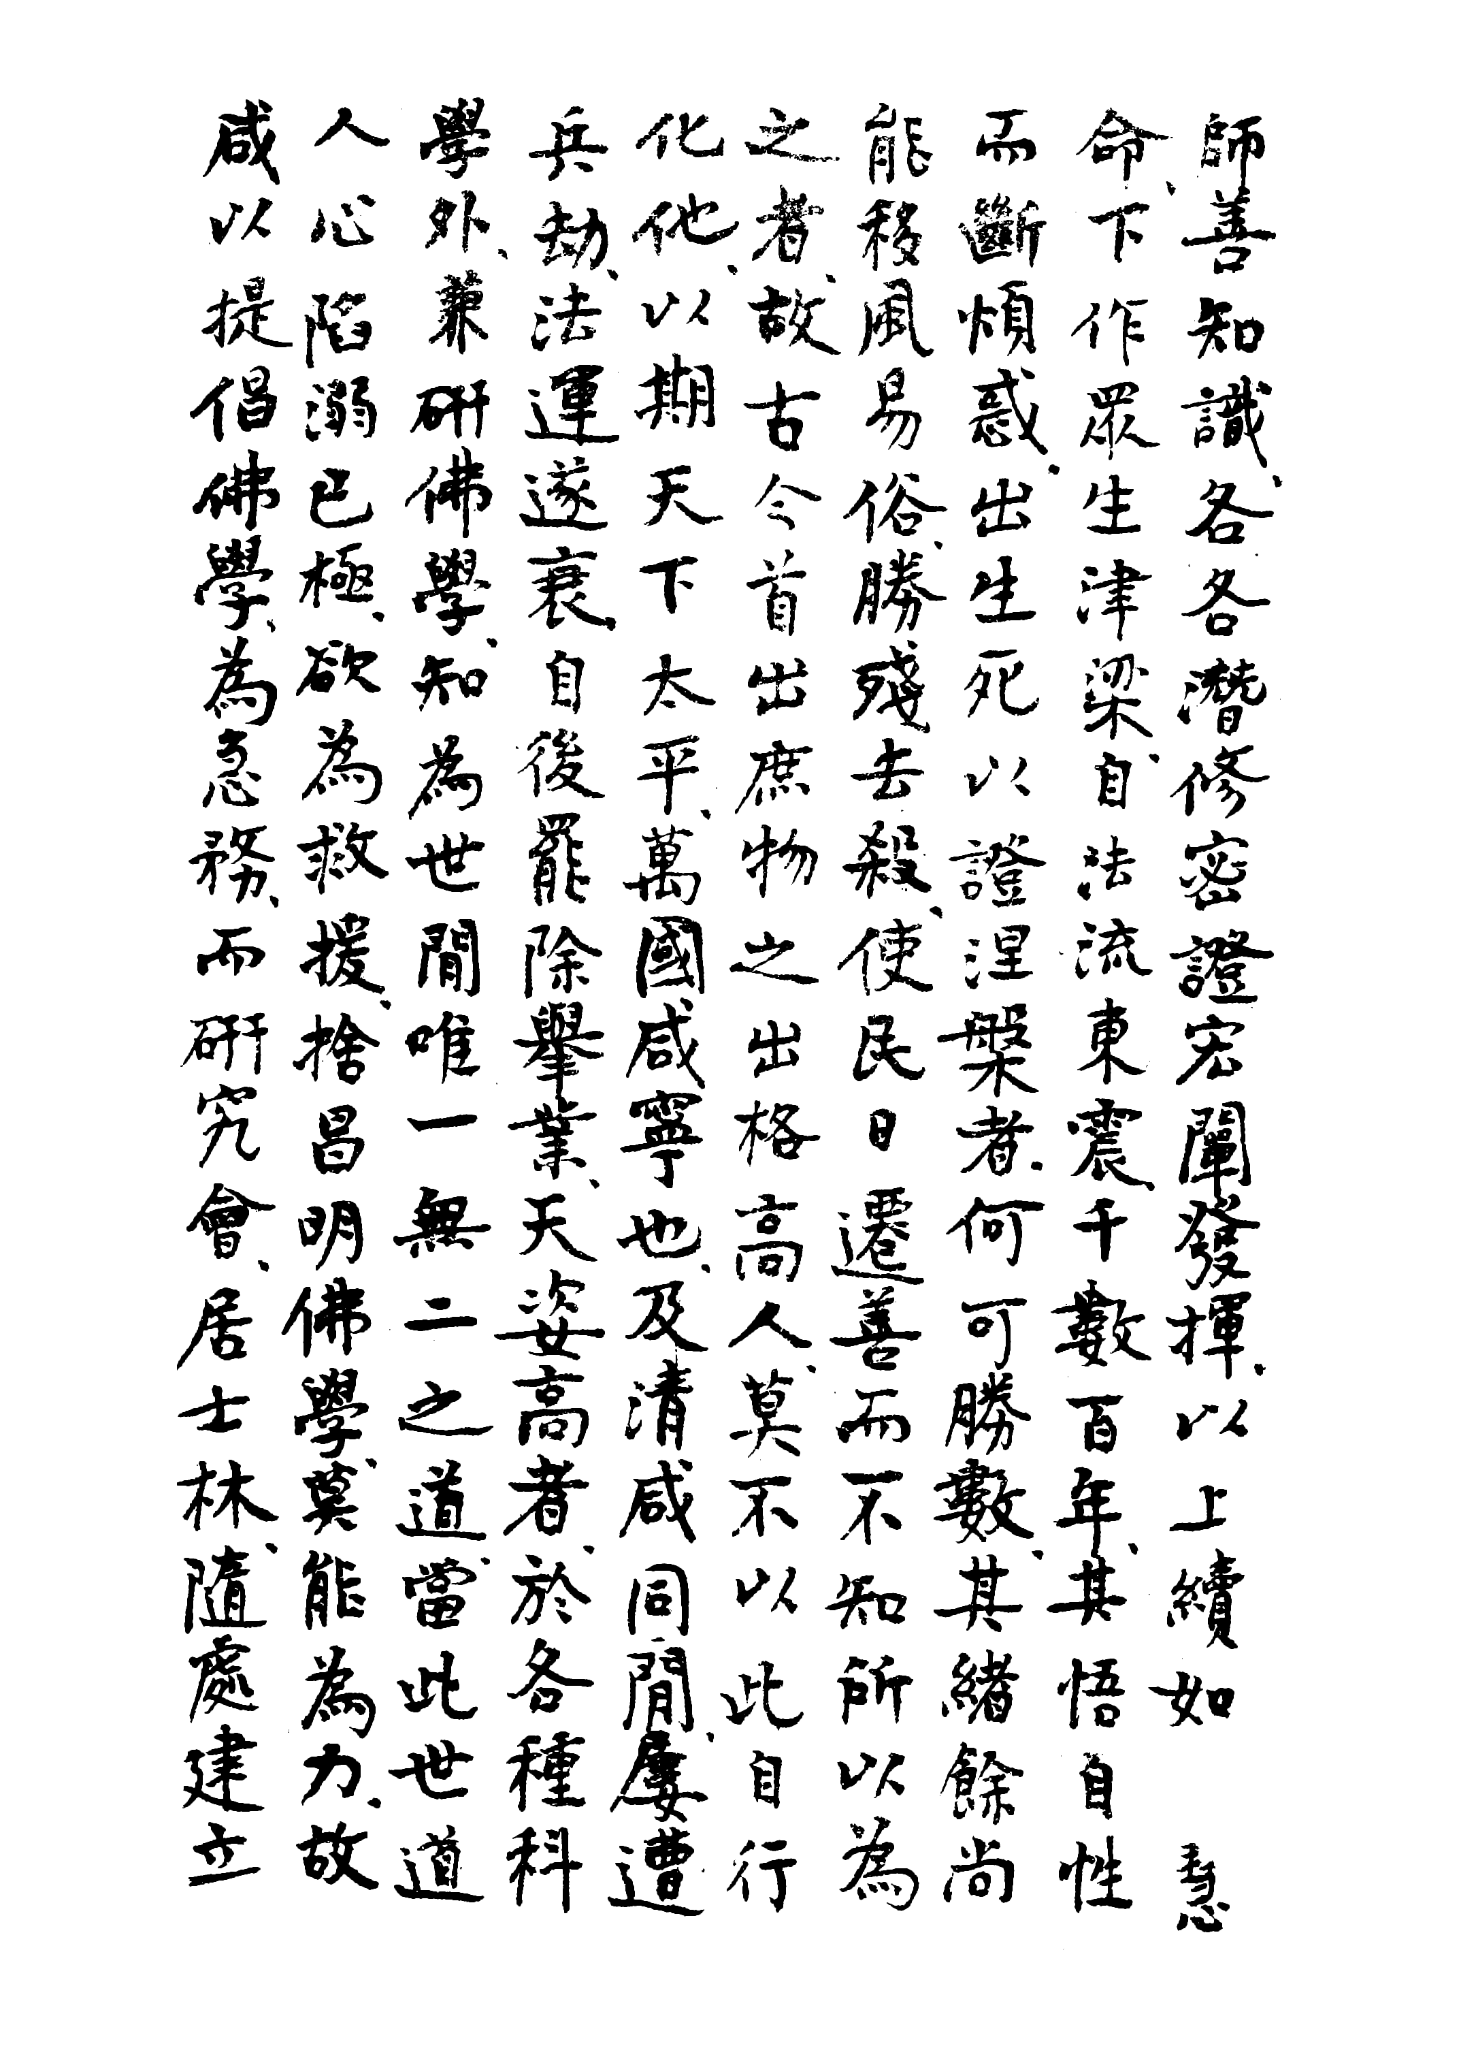 師善知識、各各潛修密證宏闡發揮、以上續如 慧
命、下作眾生津梁、自法流東震、千數百年、其悟自性
而斷煩惑、出生死以證涅槃者、何可勝數、其緒餘尚
能移風易俗、勝殘去殺、使民日遷善而不知所以為
之者、故古今首出庶物之出格高人、莫不以此自行
化他、以期天下太平、萬國咸寧也、及清咸同間、屢遭
兵劫、法運遂衰、自後罷除舉業、天姿高者、於各種科
學外、兼研佛學、知為世間唯一無二之道、當此世道
人心陷溺已極、欲為救援、捨昌明佛學、莫能為力、故
咸以提倡佛學、為急務、而研究會、居士林、隨處建立